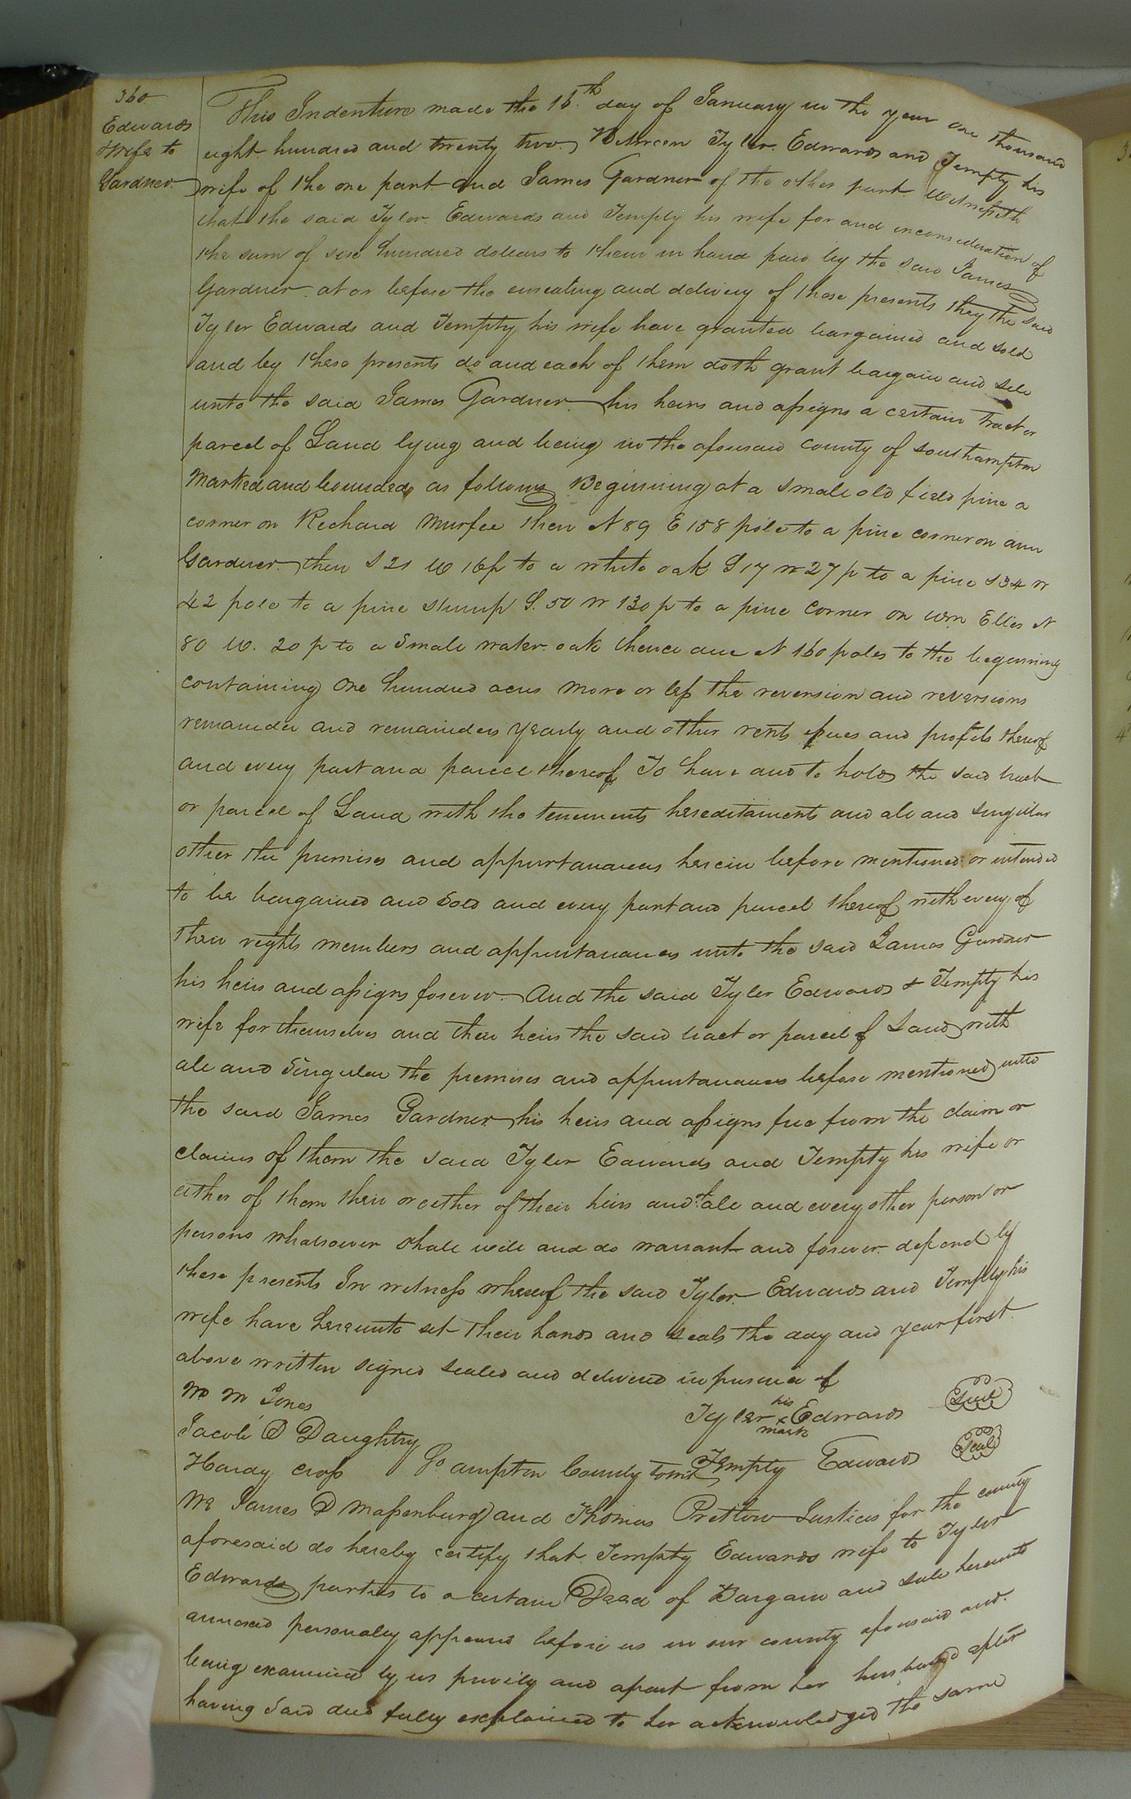 360
Edwards
Wife to
Gardner
This Indenture made the 16th day of January in the year one thousand
eight hundred and twenty two Between Tyler Edwards and Tempty his
wife of the one part and James Gardner of the other part Witnesseth
that the said Tyler Edwards and Tempty his wife for and inconsideration of
the sum of six hundred dollars to them in hand paid by the said James
Gardner at or before the ensealing and delivery of these presents they the said
Tyler Edwards and Tempty his wife have granted bargained and sold
and by these presents do and each of them doth grant bargain and sell
unto the said James Gardner his heirs and assigns a certain Tract or
parcel of Land lying and being in the aforesaid county of Southampton
Marked and bounded as follows Beginning at a small old field pine a
corner on Richard Murfee then N 89 E 158 pole to a pine corner on ann
Gardner then S 21 W 16p to a white oak S 17 W 27 p to a pine S 34 W
42 pole to a pine stump S. 50 W 130 p to a pine corner on Wm Elles N
80 W. 20 p to a Small water oak thence due N 160 poles to the beginning
containing One hundred acres more or less the reversion and reversions
remainder and remainders yearly and other rents issues and profits thereof
and every part and parcel thereof To have and to hold the said tract
or parcel of Land with the tenements hereditaments and all and singular
other the premises and appurtanances herein before mentioned or intended
to be bargained and Sold and every part and parcel thereof with every of
their rights members and appurtanances unto the said James Gardner
his heirs and assigns forever. And the said Tyler Edwards & Tempty his
wife for themselves and their heirs the said tract or parcel of Land with
all and Singular the premises and appurtanances before mentioned unto
the said James Gardner his heirs and assigns free from the claim or
claims of them the said Tyler Edwards and Tempty his wife or
either of them their or either of their heirs and of all and every other person or
persons whatsoever shall will and do warrant and forever defend by
these presents In witness whereof the said Tyler Edwards and Tempty his
wife have hereunto set their hands and seals the day and year first
above written signed sealed and delivered in presence of
Wm M Jones
Tyler his x mark Edwards Seal
Jacob D Daughtry
Hardy Cross
Tempty Edwards Seal
So ampton County towit
We James D Massenburg and Thomas Pretlow Justices for the county
aforesaid do hereby certify that Tempty Edwards wife to Tyler
Edwards parties to a certain Deed of Bargain and sale hereunto
annexed personally appeared before us in our county aforesaid and
being examined by us privily and apart from her husband after
having Said deed fully explained to her acknowledged the same